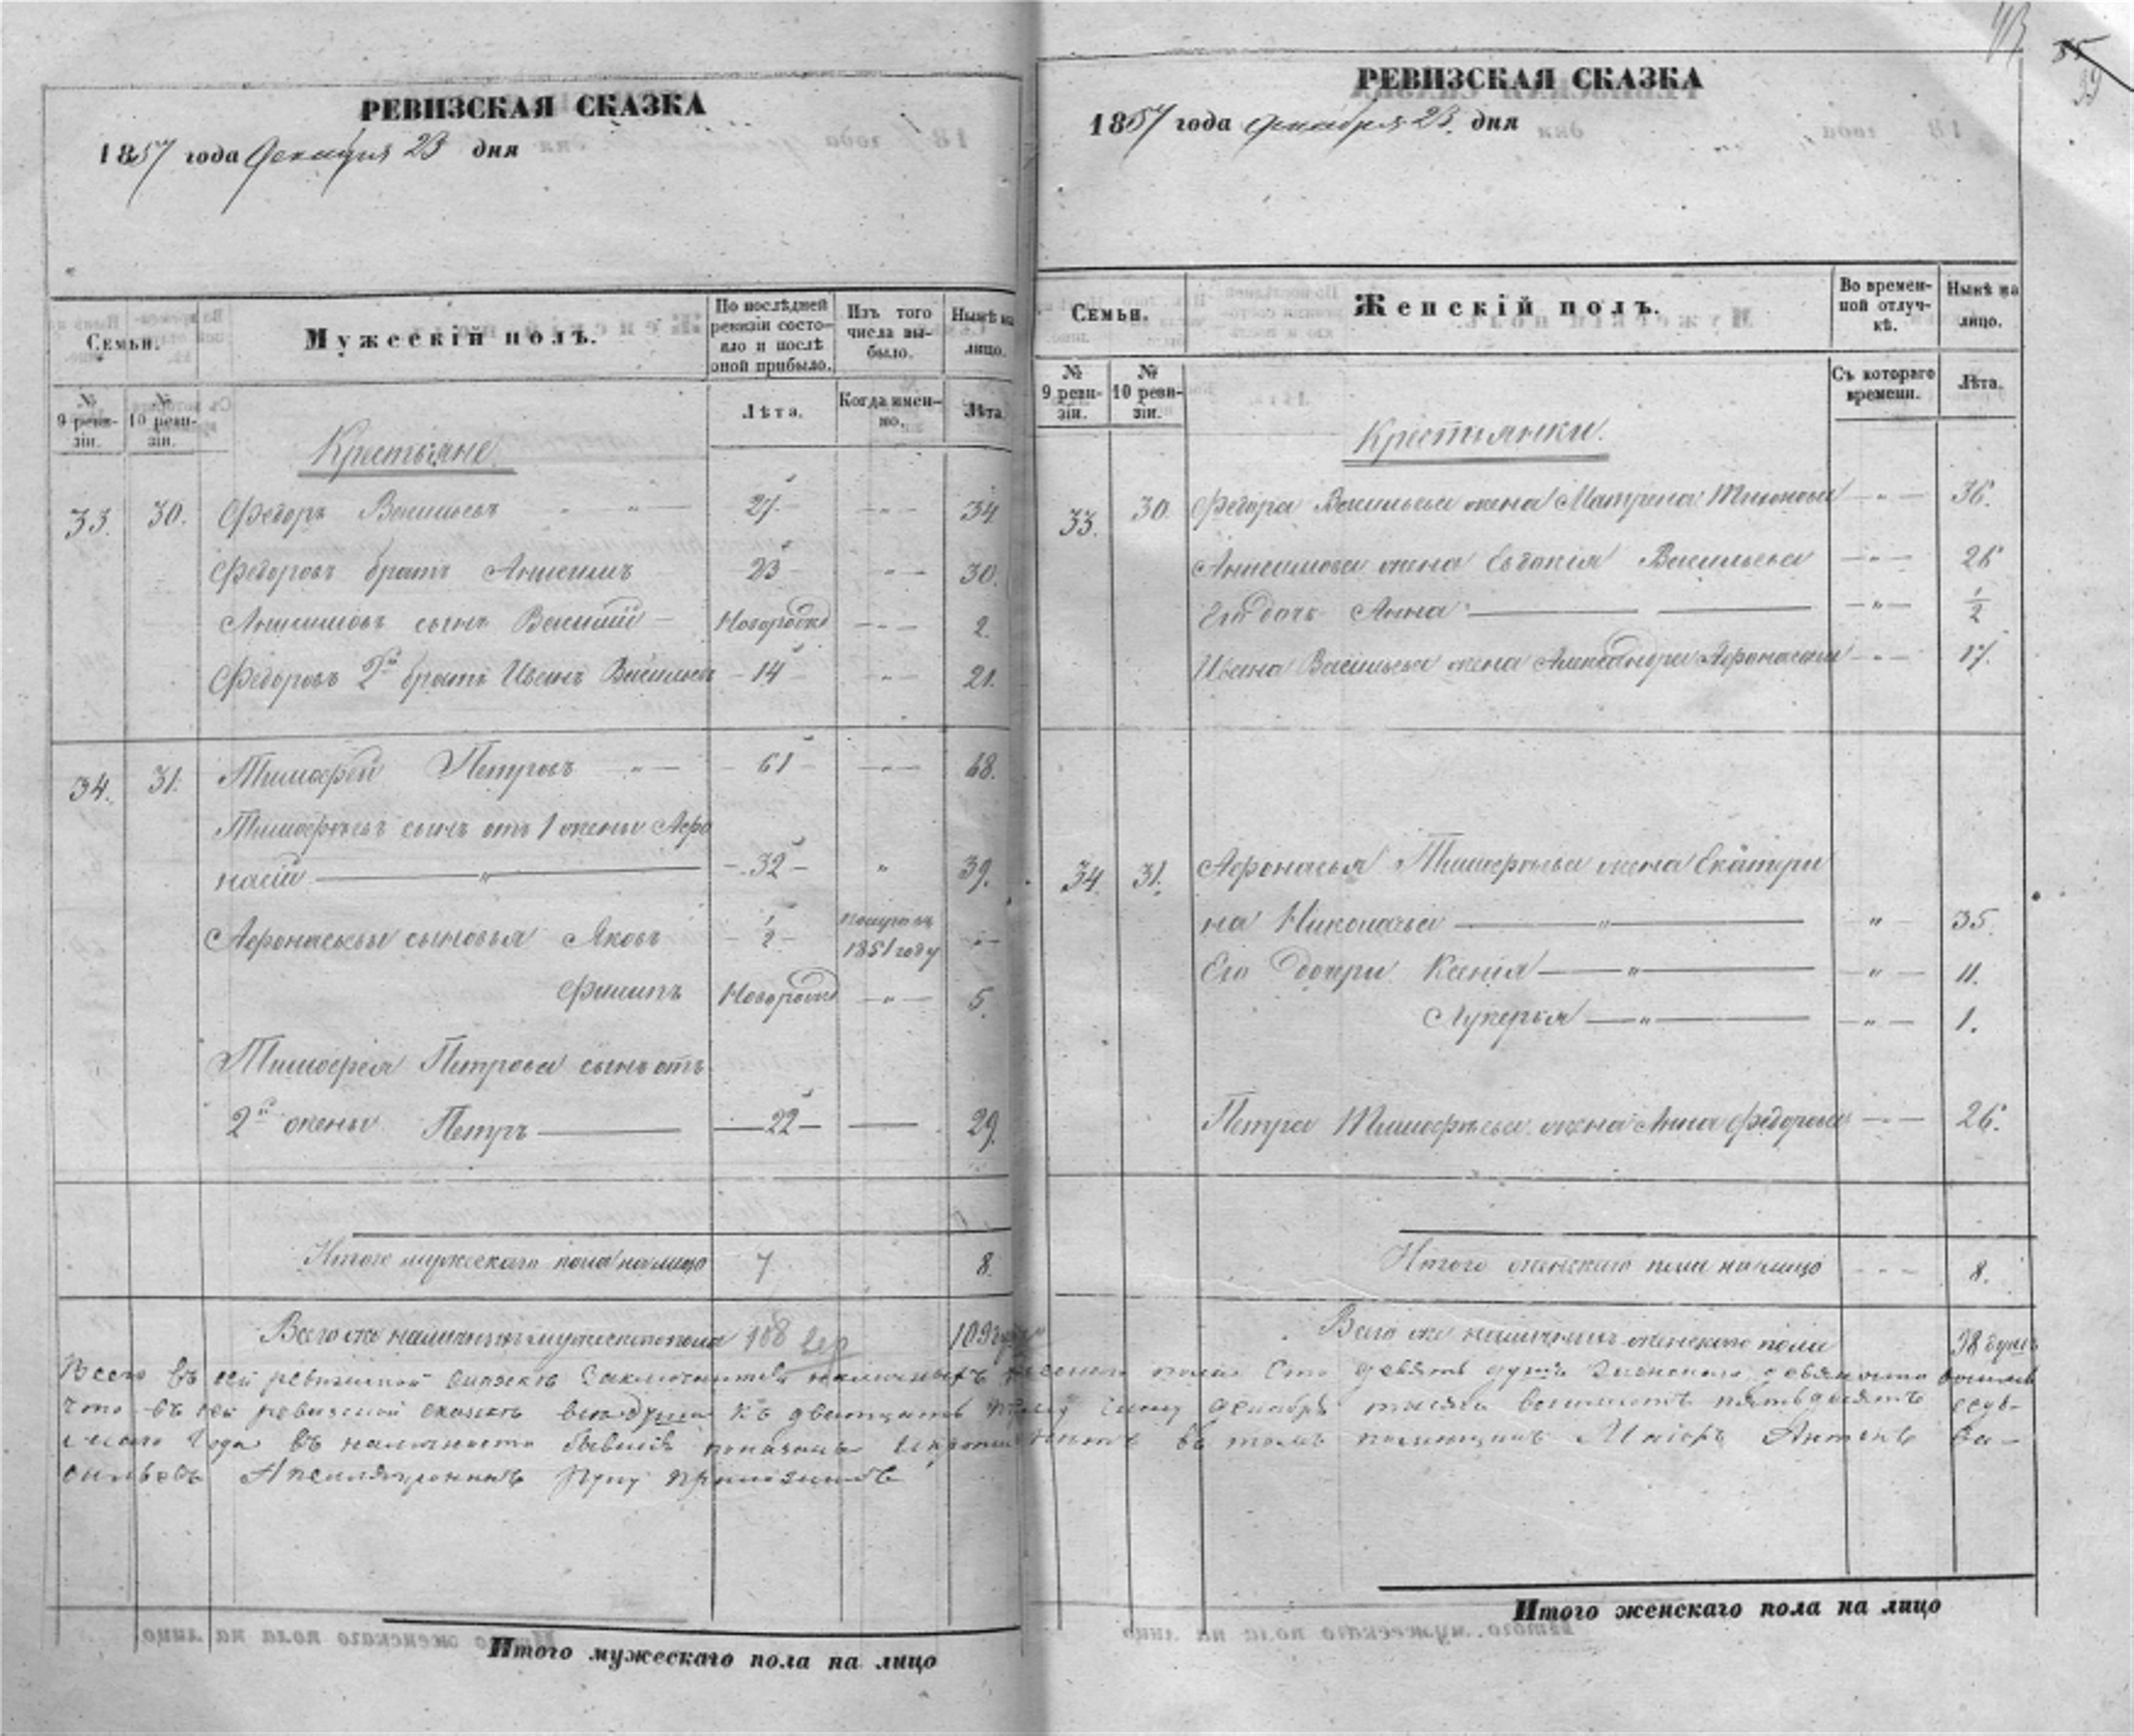 РЕВИЗСКАЯ СКАЗКА
1857 года Декабря 23 дня
Семьи.
Мужескій полъ.
По послѣдней ревизіи состояло и послѣ оной прибыло.
Изъ того числа выбыло.
Нынѣ на лицо.
№ 9 ревизіи.
№ 10 ревизіи.
Лѣта.
Когда именно.
Лѣта.
Крестьяне
33. 30. Федоръ Васильевъ 27 34
Федоровъ братъ Анисимъ 23 30.
Анисимовъ сынъ Василій Новорожд 2.
Федоровъ 2й братъ Иванъ Васильевъ 14 21.
34. 31. Тимофей Петровъ 61 68.
Тимофеевъ сынъ отъ 1 жены Афо
насій 32 39.
Афонасьевы сыновья Яковъ 1/2 1851 году
Филипъ Новорожд 5.
Тимофея Петрова сынъ отъ
2й жены Петръ 22 29.
Итого мужескаго пола на лицо 7 8.
Всего же наличныхъ мужескаго пола 108 109
РЕВИЗСКАЯ СКАЗКА
1857 года Декабря 23. дня
Семьи.
Женскій полъ.
Во временной отлучкѣ.
Нынѣ на лицо.
№ 9 ревизіи.
№ 10 ревизіи.
Съ котораго времени.
Лѣта.
Крестьянки.
33. 30. Федора Васильева жена Матрена 36.
Анисимова жена Евдокія Васильева 26
Его дочь Анна 1/2
Ивана Васильева жена Александра Афонасьева 17.
34. 31. Афонасья Тимофеева жена Екатери
на Николаева 35.
Его дочери Ксенія 11.
Лукерья 1.
Петра Тимофеева жена Анна Федорова 26.
Итого женскаго пола на лицо 8.
Всего же наличныхъ женскаго пола 98 душъ
Всего въ сей ревизской сказкѣ заключается наличныхъ пола сто девять душъ женскаго девяносто восемь
что въ сей ревизской сказкѣ все души къ двадцать декабря тысяча восемьсотъ пятьдесятъ седь-
года въ наличности бывшія показаны въ томъ помещикъ Маіоръ Антонъ Ва-
сильевъ руку приложилъ
Итого мужескаго пола на лицо
Итого женскаго пола на лицо